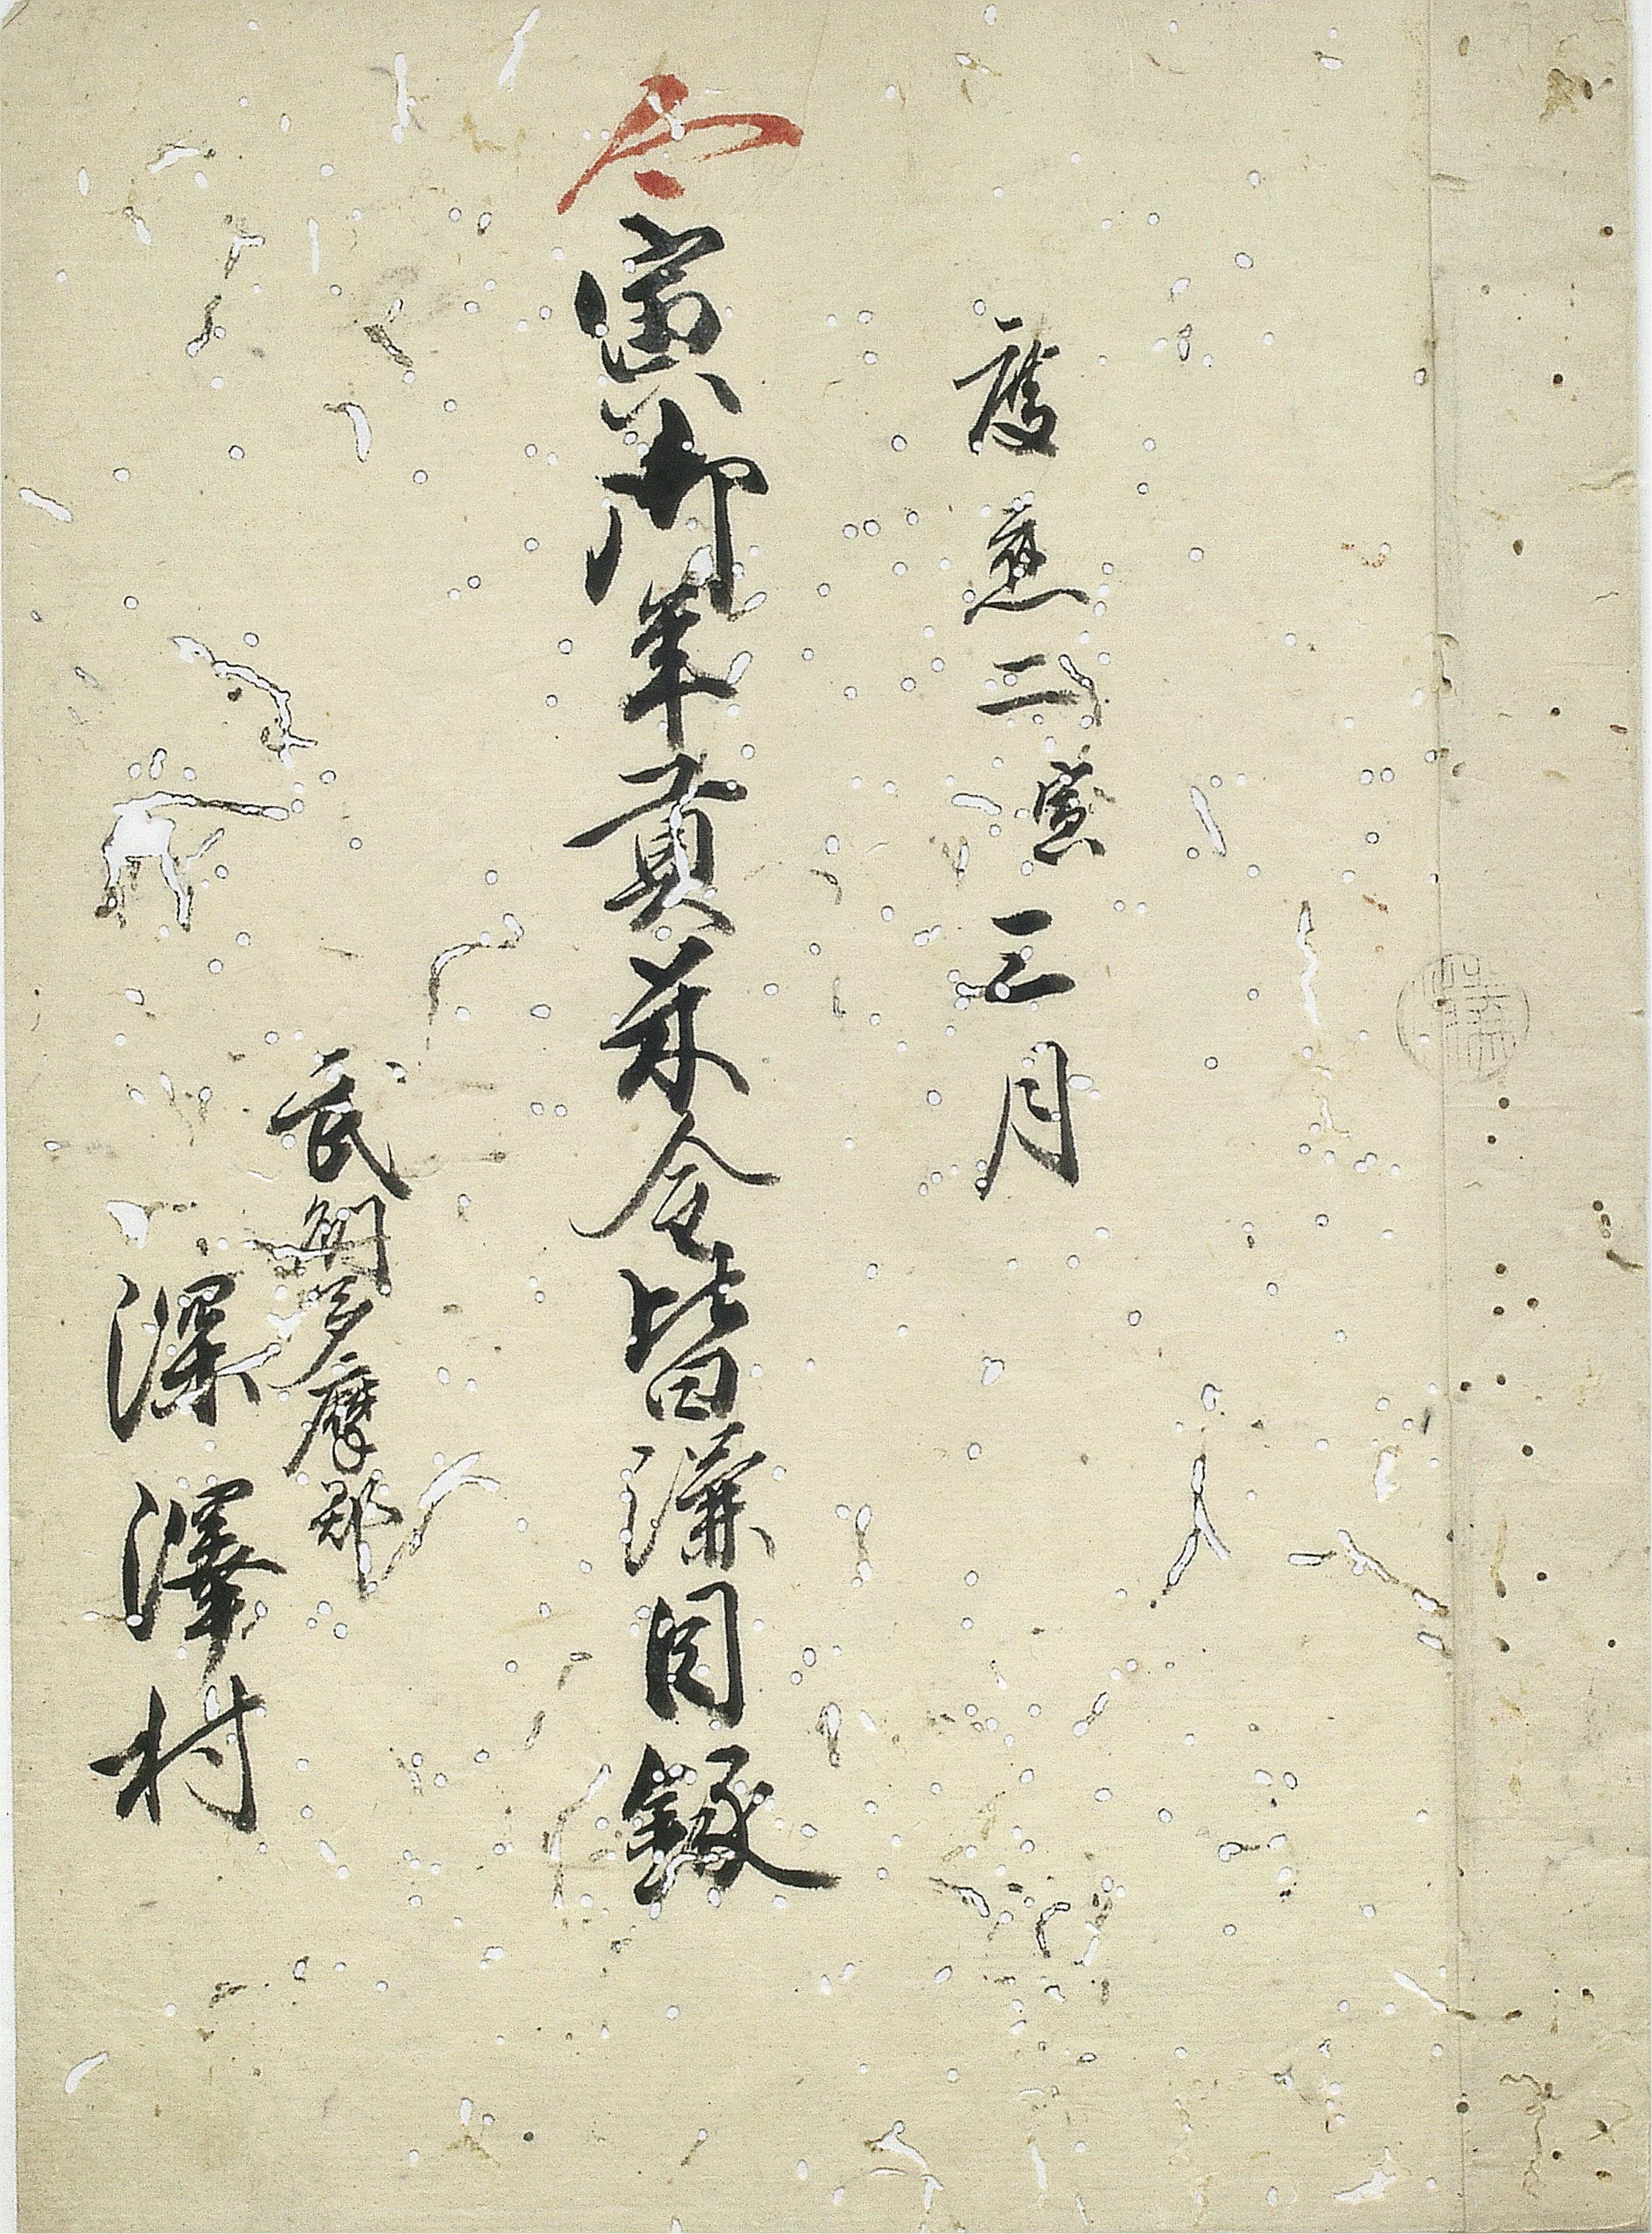 慶應二寅三月
寅御年貢米金皆濟目録
武州多摩郡
深澤村